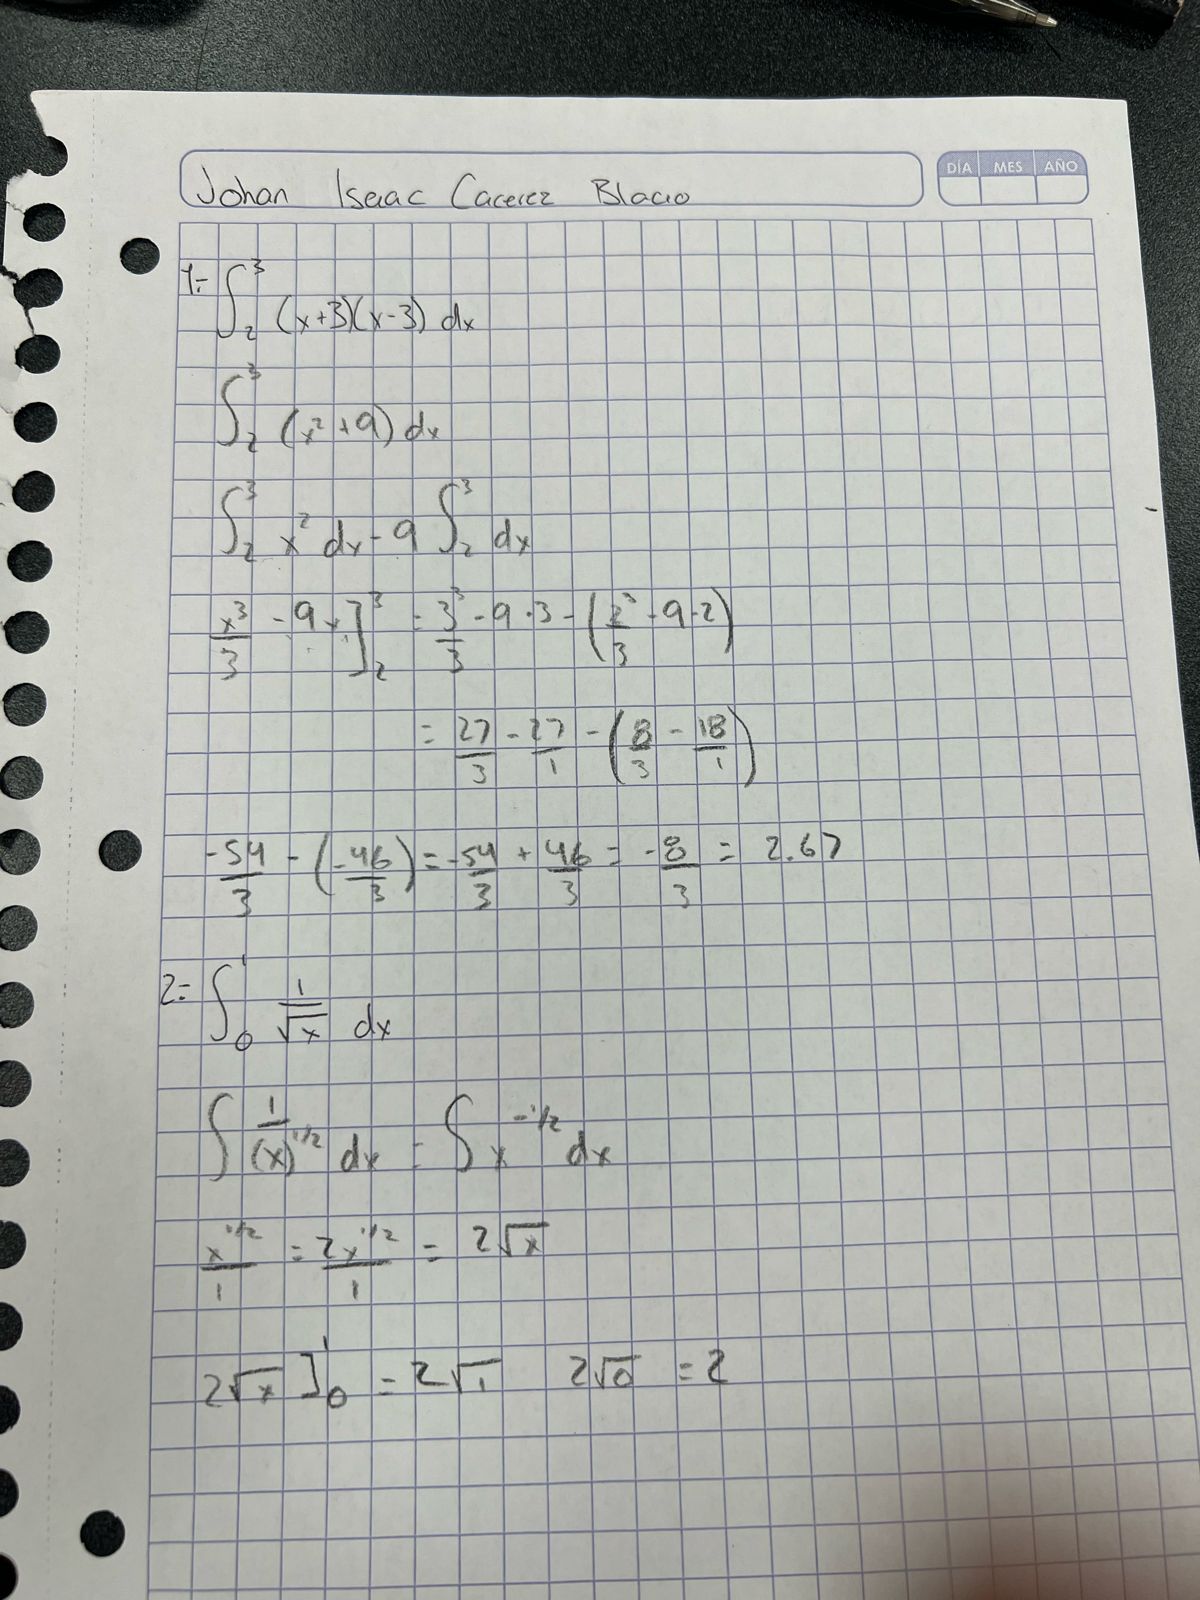 Johan Isaac Cacerez Blacio
DÍA MES AÑO
1= ∫₂³ (x+3)(x-3) dx
∫₂³ (x²+9) dx
∫₂³ x² dx - 9 ∫₂³ dx
x³/3 - 9x]₂³ = 3³/3 - 9·3 - (2³/3 - 9·2)
= 27/3 - 27/1 - (8/3 - 18/1)
-54/3 - (-46/3) = -54/3 + 46/3 = -8/3 = 2.67
2= ∫₀¹ 1/√x dx
∫ 1/(x)^1/2 dx = ∫ x^-1/2 dx
x^1/2/1 = 2x^1/2/1 = 2√x
2√x ]₀¹ = 2√1 2√0 = 2